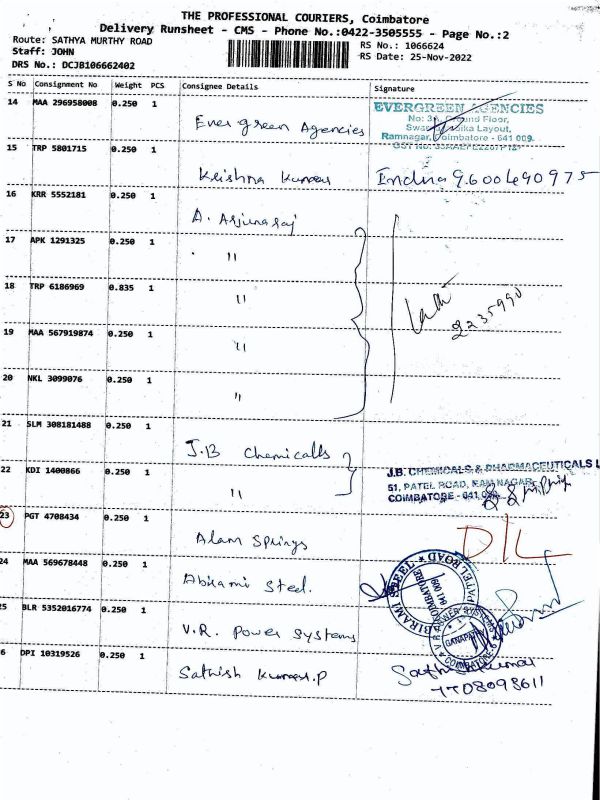 THE PROFESSIONAL COURIERS, Coimbatore
Delivery Runsheet - CMS - Phone No.:0422-3505555 - Page No.:2
Route: SATHYA MURTHY ROAD
RS No.: 1066624
Staff: JOHN
RS Date: 25-Nov-2022
DRS No.: DCJB106662402
S No Consignment No Weight PCS Consignee Details Signature
14 MAA 296958008 0.250 1 Ever green Agencies
EVERGREEN AGENCIES
Ground Floor,
Layout,
Ramnagar, Coimbatore - 641 009.
15 TRP 5801715 0.250 1 Krishna Kumar Indhu 9600490975
16 KRR 5552181 0.250 1 A. Arjunaraj
17 APK 1291325 0.250 1 "
18 TRP 6186969 0.835 1 "
2235990
19 MAA 567919874 0.250 1 "
20 NKL 3099076 0.250 1 "
21 SLM 308181488 0.250 1 J.B Chemicalls
22 KDI 1400866 0.250 1 "
J.B. CHEMICALS & PHARMACEUTICALS L
51, PATEL ROAD, RAM NAGAR,
COIMBATORE - 641 009.
23 PGT 4708434 0.250 1 Alam Springs D/L
24 MAA 569678448 0.250 1 Abirami Steel.
ABIRAMI STEEL * PATEL ROAD *
COIMBATORE
641 009
5 BLR 5352016774 0.250 1 V.R. Power Systems
V R POWER SYSTEMS
GANAPATHY
COIMBATORE-6
6 DPI 10319526 0.250 1 Sathish Kumar.P
Sathish Kumar
7708098611